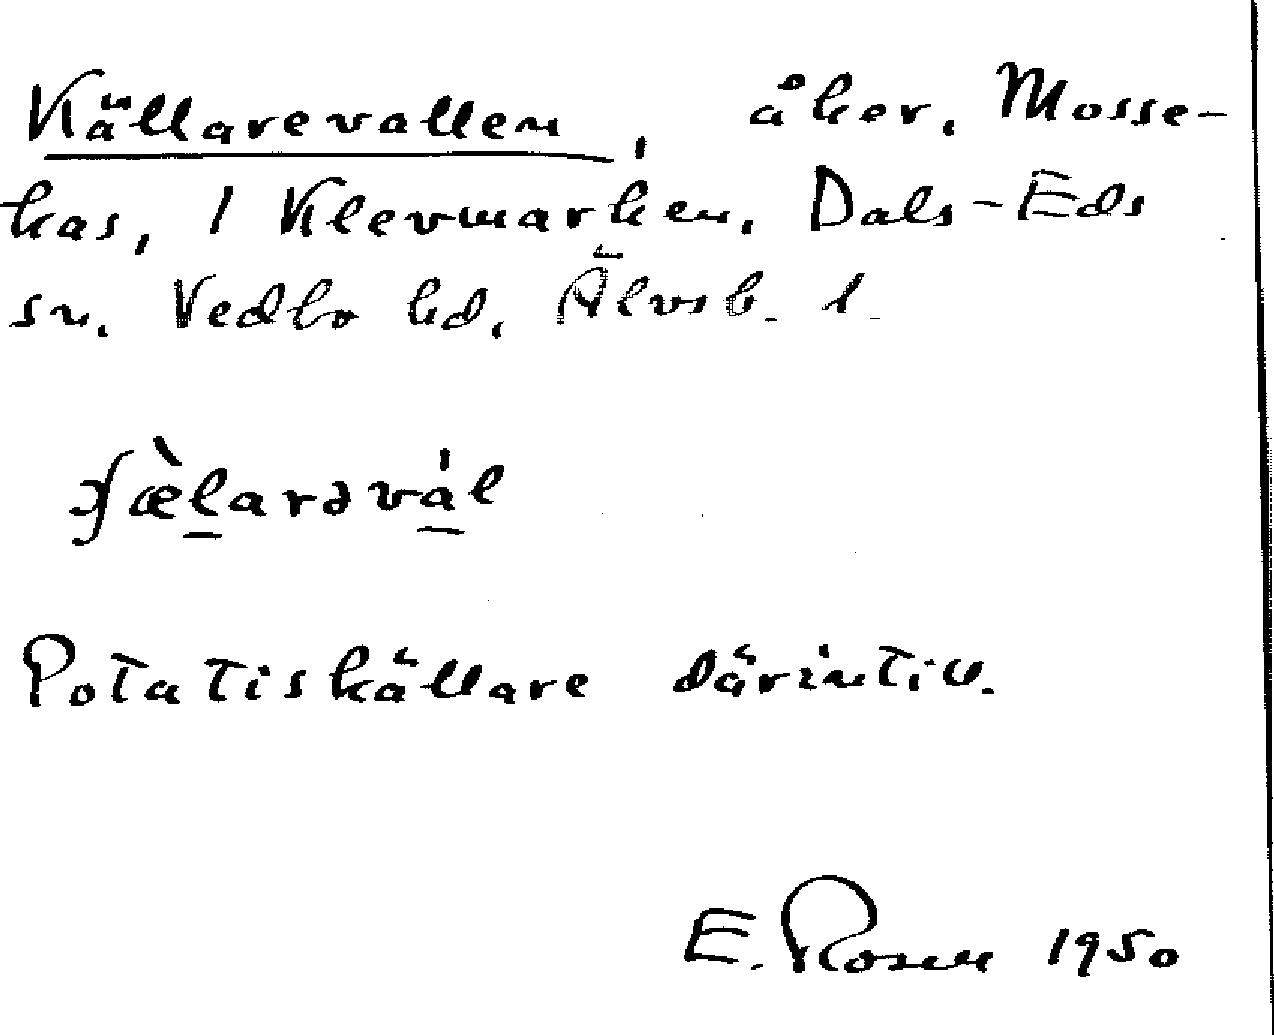 Källarevallen, åker, Mosse-
kas, 1 Klevmarken, Dals-Eds
sn. Vedbo hd. Älvsb. l.
Potatiskällare därintill.
E. Rosen 1950